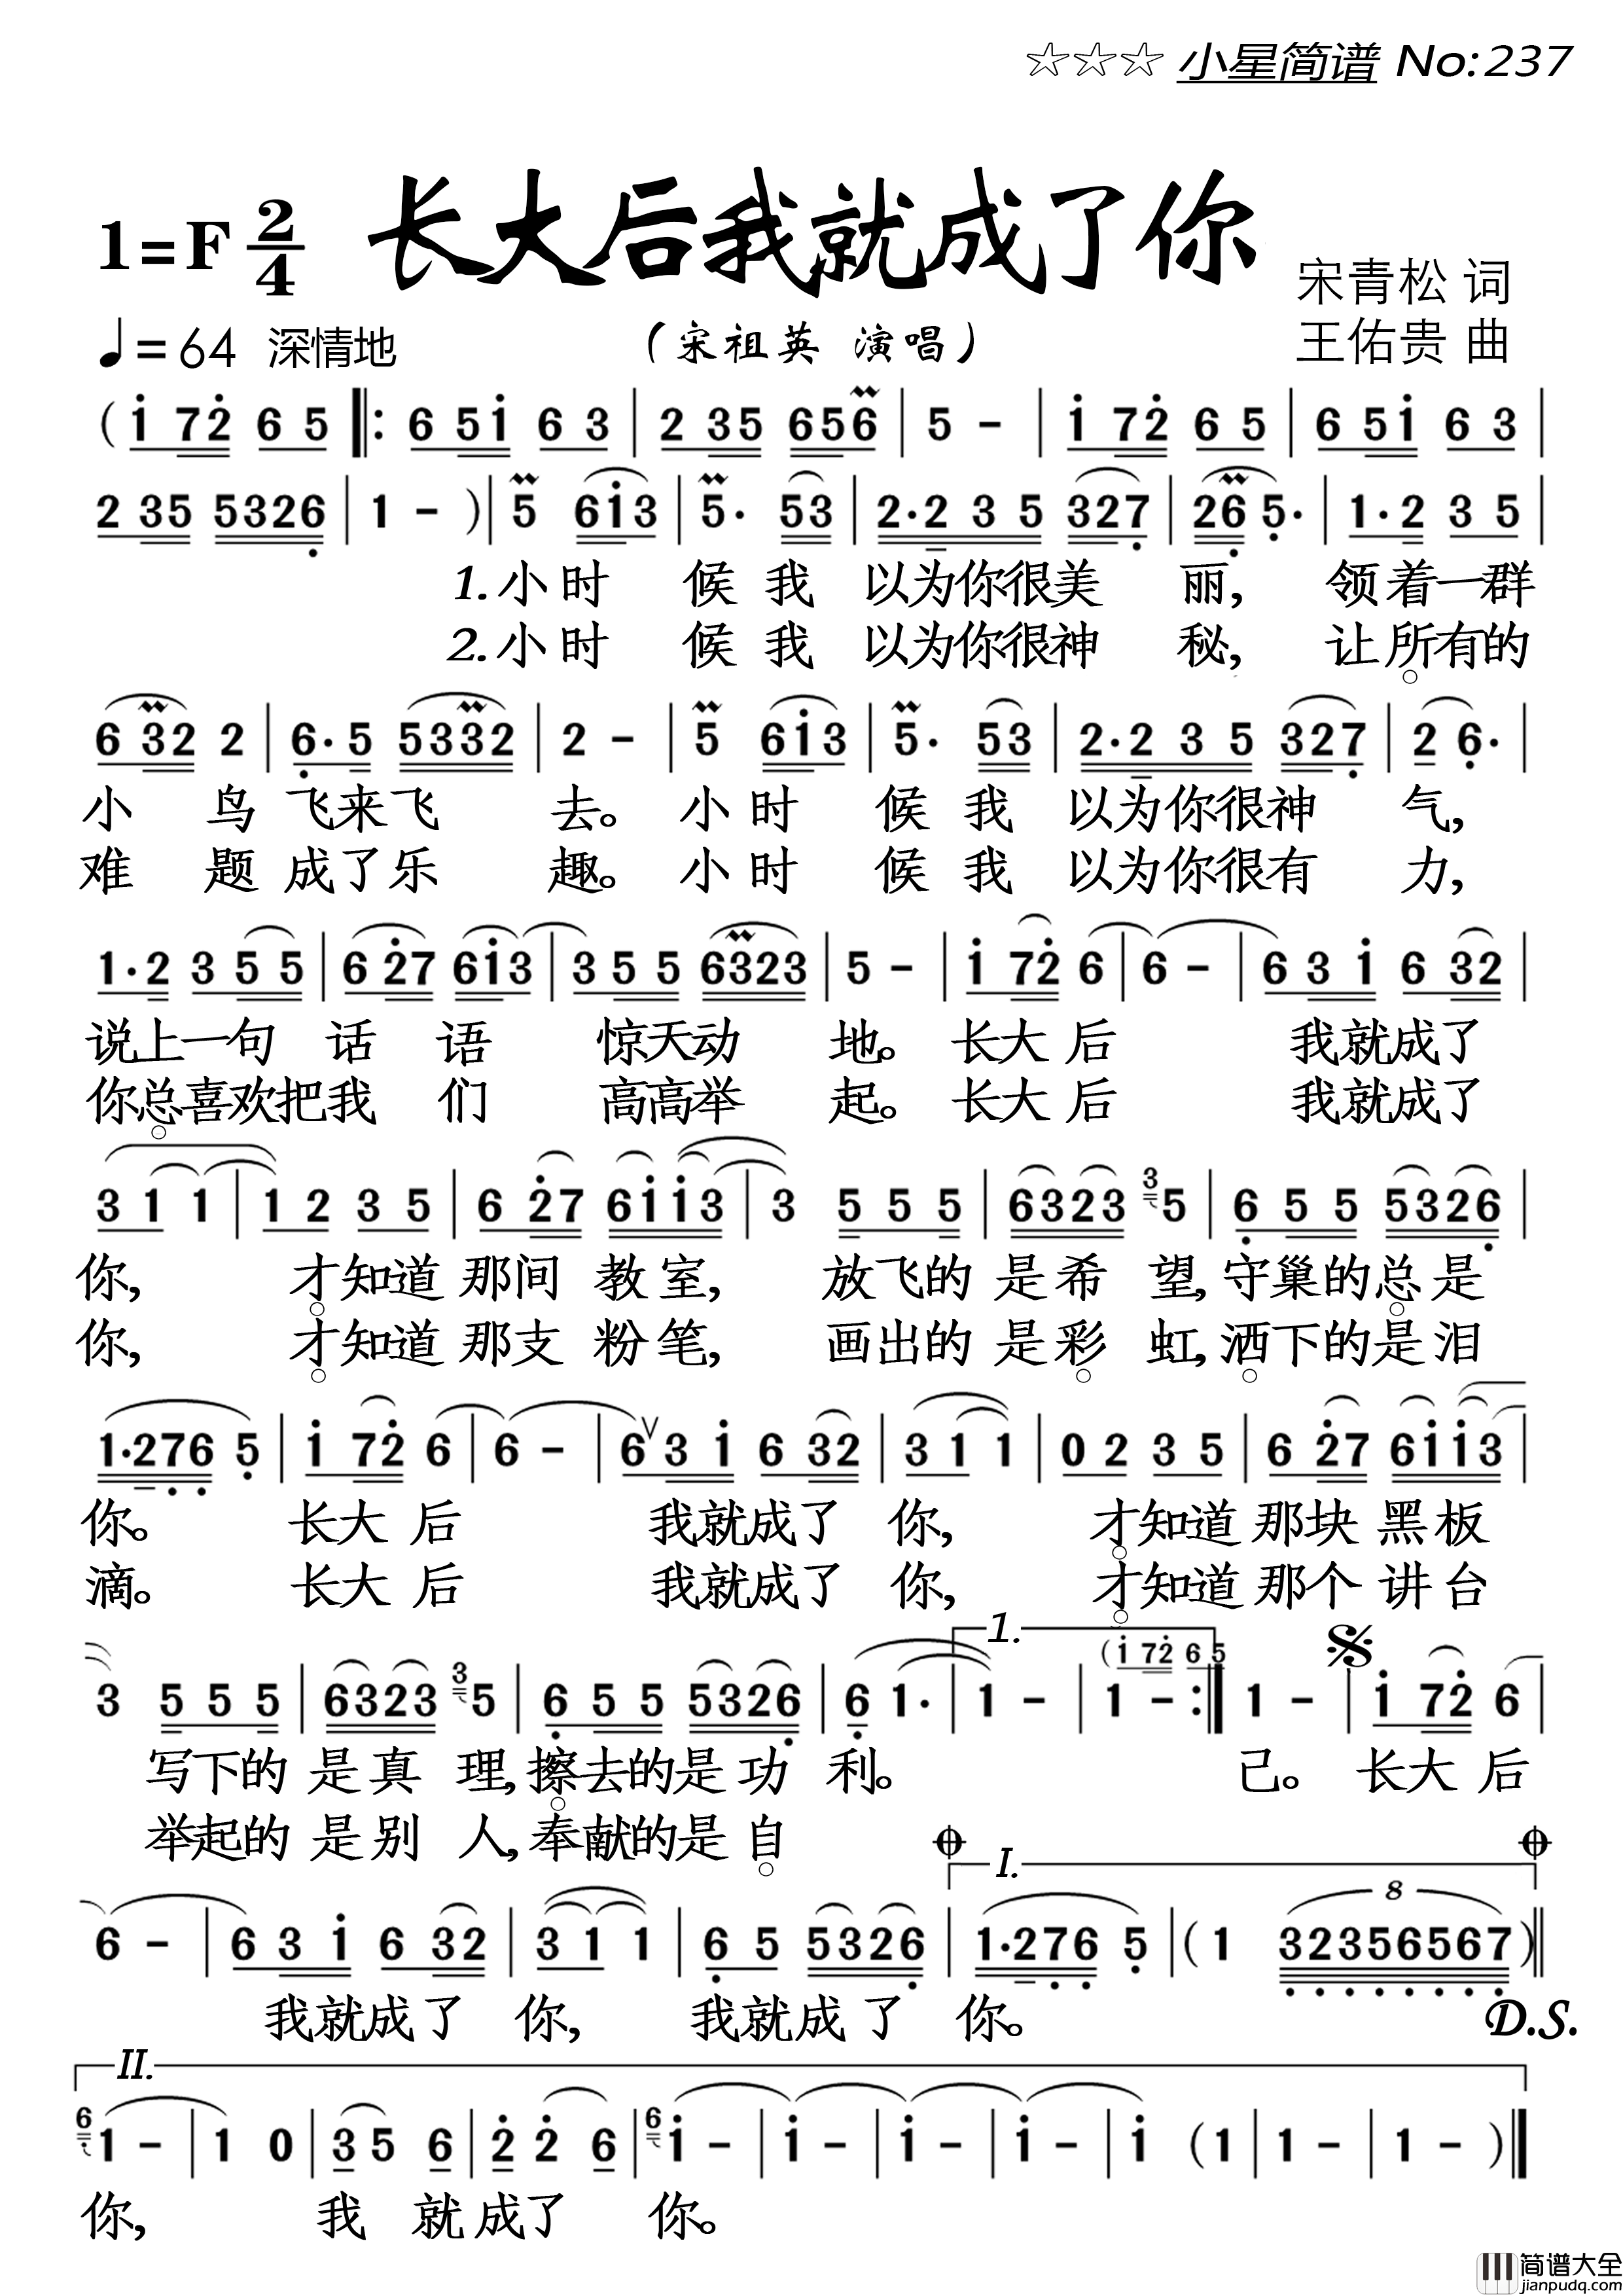 ☆☆☆ 小星简谱 No:237
1=F 2/4 长大后我就成了你
宋青松 词
♩=64 深情地 (宋祖英 演唱) 王佑贵 曲
( i 7 2 6 5 ‖: 6 5 i 6 3 | 2 3 5 6 5 6 | 5 - | i 7 2 6 5 | 6 5 i 6 3 |
2 3 5 5 3 2 6 | 1 - ) | 5 6 i 3 | 5 . 5 3 | 2 . 2 3 5 3 2 7 | 2 6 5 . | 1 . 2 3 5 |
1.小时 候我 以为你很美 丽, 领着一群
2.小时 候我 以为你很神 秘, 让所有的
6 3 2 2 | 6 . 5 5 3 3 2 | 2 - | 5 6 i 3 | 5 . 5 3 | 2 . 2 3 5 3 2 7 | 2 6 . |
小 鸟 飞来飞 去。 小时 候我 以为你很神 气,
难 题 成了乐 趣。 小时 候我 以为你很有 力,
1 . 2 3 5 5 | 6 2 7 6 i 3 | 3 5 5 6 3 2 3 | 5 - | i 7 2 6 | 6 - | 6 3 i 6 3 2 |
说上一句 话 语 惊天动 地。 长大后 我就成了
你总喜欢把我 们 高高举 起。 长大后 我就成了
3 1 1 | 1 2 3 5 | 6 2 7 6 i i 3 | 3 5 5 5 | 6 3 2 3 3 5 | 6 5 5 5 3 2 6 |
你, 才知道 那间 教室, 放飞的 是希 望,守巢的总是
你, 才知道 那支 粉笔, 画出的 是彩 虹,洒下的是泪
1 . 2 7 6 5 | i 7 2 6 | 6 - | 6 3 i 6 3 2 | 3 1 1 | 0 2 3 5 | 6 2 7 6 i i 3 |
你。 长大后 我就成了 你, 才知道 那块 黑板
滴。 长大后 我就成了 你, 才知道 那个 讲台
1. ( i 7 2 6 5
3 5 5 5 | 6 3 2 3 3 5 | 6 5 5 5 3 2 6 | 6 1 . | 1 - | 1 - :‖ 1 - | i 7 2 6 |
写下的 是真 理,擦去的是功 利。 己。 长大后
举起的 是别 人,奉献的是自
I. 8
6 - | 6 3 i 6 3 2 | 3 1 1 | 6 5 5 3 2 6 | 1 . 2 7 6 5 | ( 1 3 2 3 5 6 5 6 7 ) ‖
我就成了 你, 我就成了 你。 D.S.
II.
6 1 - | 1 0 | 3 5 6 | 2 2 6 | 6 i - | i - | i - | i - | i ( 1 | 1 - | 1 - ) ‖
你, 我 就成了 你。
简谱大全
jianpudq.com